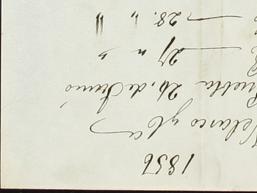 1856
Velasco y Ca
Puebla 26, de Junio
— 27 " "
— 28. " "